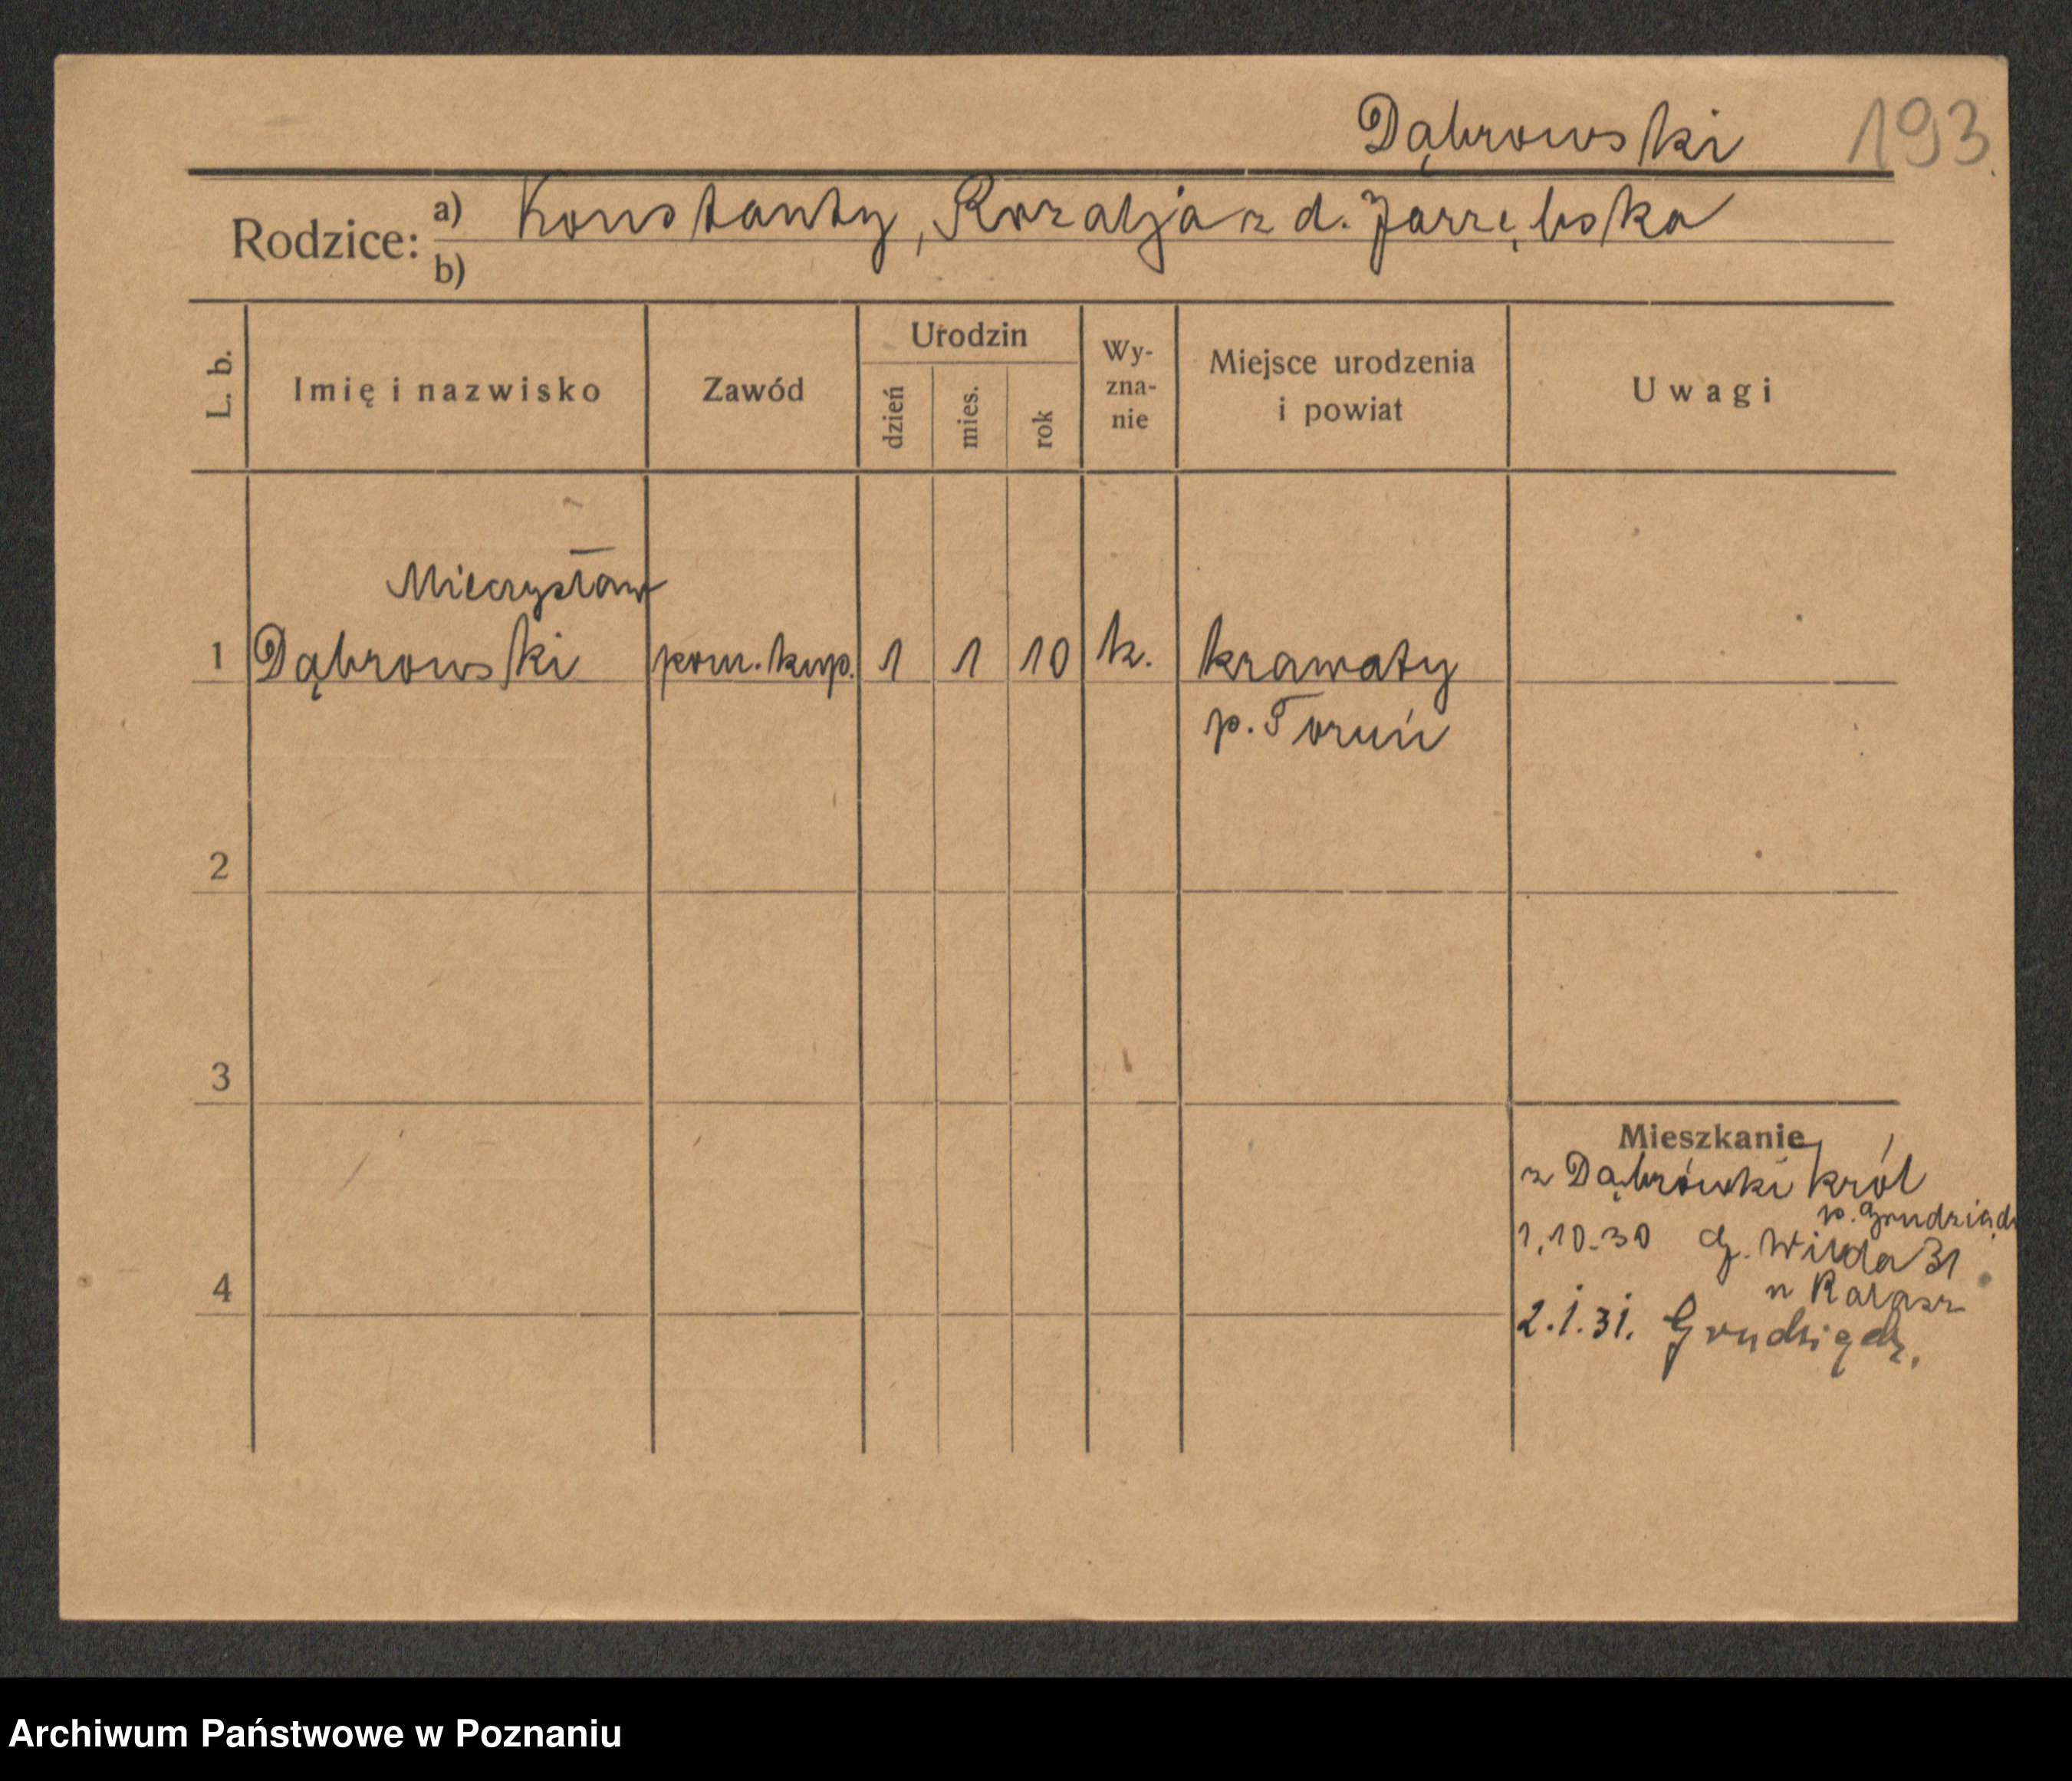 Dąbrowski 193.
Rodzice: a) Konstanty, Rozalja z d. Jarzębska
b)
L. b. Imię i nazwisko Zawód Urodzin dzień mies. rok Wy-zna-nie Miejsce urodzenia i powiat Uwagi
Mieczysław
1 Dąbrowski pom. kup. 1 1 10 k. krawaty
p. Toruń
2
3
Mieszkanie
z Dąbrówki król
p. Grudziądz
1.10.30 G. Wilda 31
u Ratajsz
4
2.1.31. Grudziądz.
Archiwum Państwowe w Poznaniu